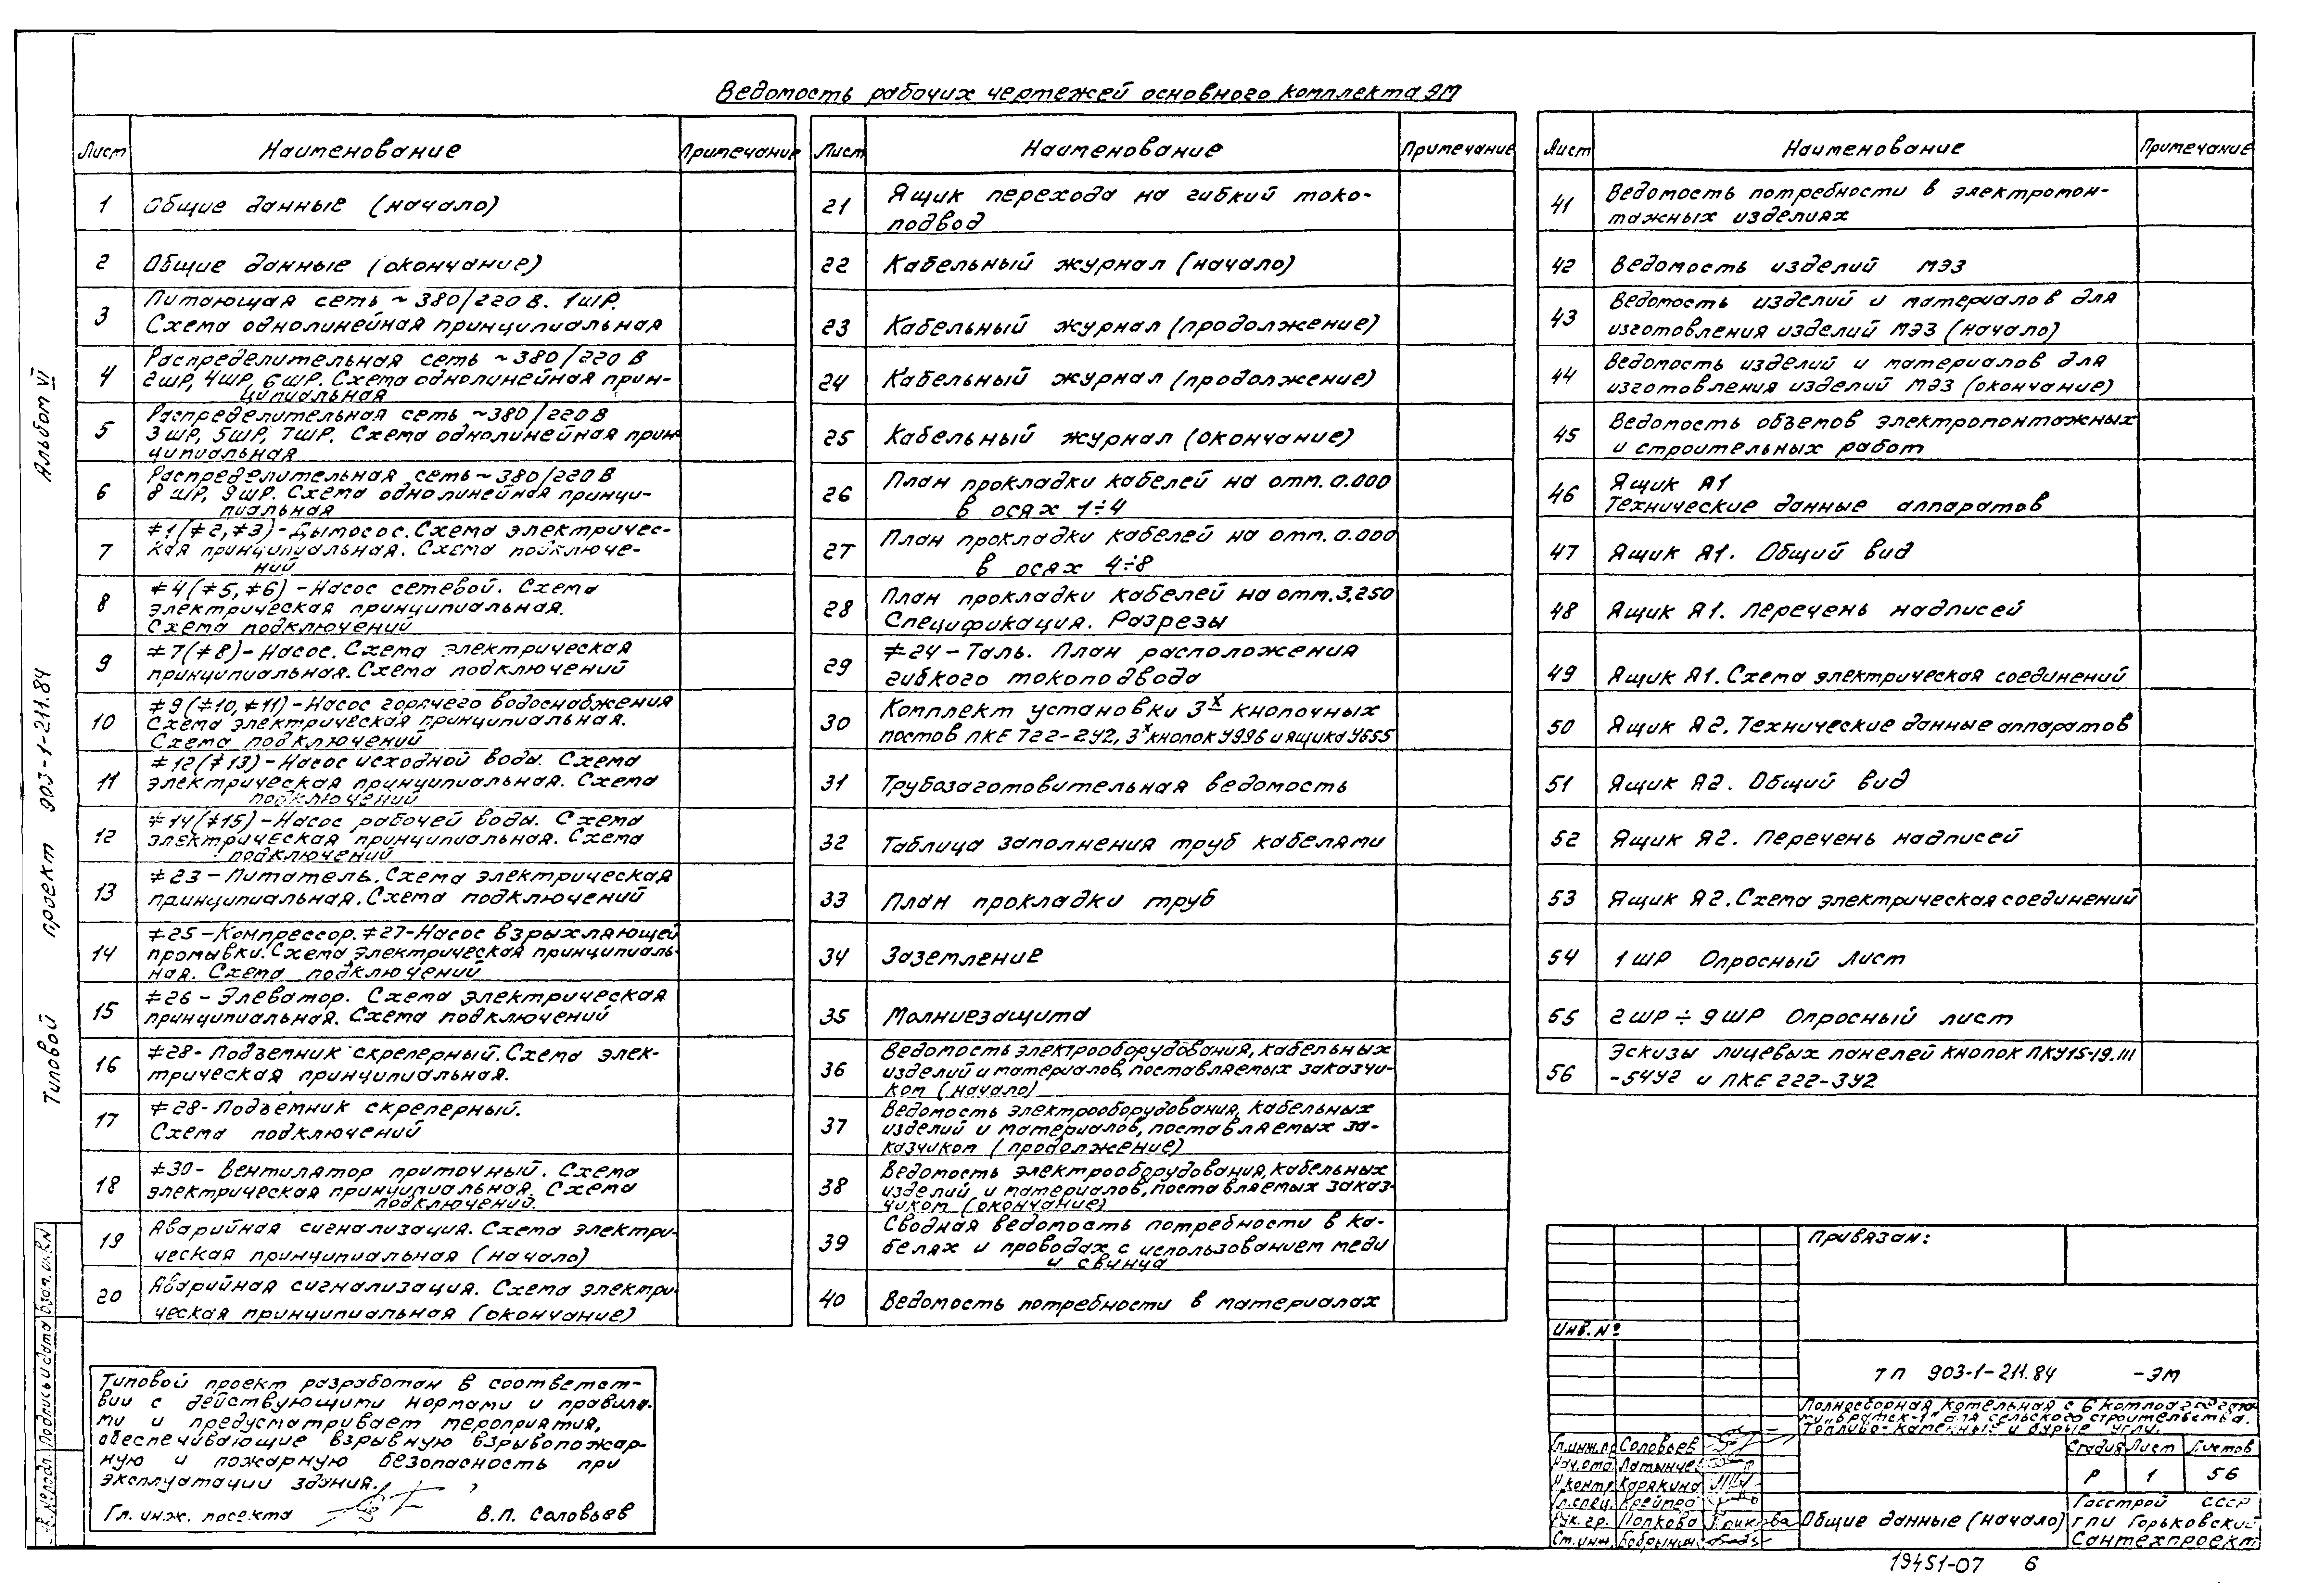 Ведомость рабочих чертежей основного комплекта ЭМ
Лист Наименование Примечание
1 Общие данные (начало)
2 Общие данные (окончание)
3 Питающая сеть ~380/220 В. 1ШР.
Схема однолинейная принципиальная
4 Распределительная сеть ~380/220 В
2ШР, 4ШР, 6ШР. Схема однолинейная прин-
ципиальная
5 Распределительная сеть ~380/220 В
3ШР, 5ШР, 7ШР. Схема однолинейная прин-
ципиальная
6 Распределительная сеть ~380/220 В
8ШР, 9ШР. Схема однолинейная принци-
пиальная
7 ≠1(≠2,≠3)-Дымосос. Схема электричес-
кая принципиальная. Схема подключе-
ний
8 ≠4(≠5,≠6)-Насос сетевой. Схема
электрическая принципиальная.
Схема подключений
9 ≠7(≠8)-Насос. Схема электрическая
принципиальная. Схема подключений
10 ≠9(≠10,≠11)-Насос горячего водоснабжения
Схема электрическая принципиальная.
Схема подключений
11 ≠12(≠13)-Насос исходной воды. Схема
электрическая принципиальная. Схема
подключений
12 ≠14(≠15)-Насос рабочей воды. Схема
электрическая принципиальная. Схема
подключений
13 ≠23-Питатель. Схема электрическая
принципиальная. Схема подключений
14 ≠25-Компрессор. ≠27-Насос взрыхляющей
промывки. Схема электрическая принципиаль-
ная. Схема подключений
15 ≠26-Элеватор. Схема электрическая
принципиальная. Схема подключений
16 ≠28-Подъемник скреперный. Схема элек-
трическая принципиальная.
17 ≠28-Подъемник скреперный.
Схема подключений
18 ≠30-Вентилятор приточный. Схема
электрическая принципиальная. Схема
подключений.
19 Аварийная сигнализация. Схема электри-
ческая принципиальная (начало)
20 Аварийная сигнализация. Схема электри-
ческая принципиальная (окончание)
Лист Наименование Примечание
21 Ящик перехода на гибкий токо-
подвод
22 Кабельный журнал (начало)
23 Кабельный журнал (продолжение)
24 Кабельный журнал (продолжение)
25 Кабельный журнал (окончание)
26 План прокладки кабелей на отм. 0.000
в осях 1÷4
27 План прокладки кабелей на отм. 0.000
в осях 4÷8
28 План прокладки кабелей на отм. 3.250
Спецификация. Разрезы
29 ≠24-Таль. План расположения
гибкого токоподвода
30 Комплект установки 3х кнопочных
постов ПКЕ 722-2У2, 3х кнопок У996 и ящика У655
31 Трубозаготовительная ведомость
32 Таблица заполнения труб кабелями
33 План прокладки труб
34 Заземление
35 Молниезащита
36 Ведомость электрооборудования, кабельных
изделий и материалов, поставляемых заказчи-
ком (начало)
37 Ведомость электрооборудования, кабельных
изделий и материалов, поставляемых за-
казчиком (продолжение)
38 Ведомость электрооборудования, кабельных
изделий и материалов, поставляемых заказ-
чиком (окончание)
39 Сводная ведомость потребности в ка-
белях и проводах с использованием меди
и свинца
40 Ведомость потребности в материалах
Лист Наименование Примечание
41 Ведомость потребности в электромон-
тажных изделиях
42 Ведомость изделий МЭЗ
43 Ведомость изделий и материалов для
изготовления изделий МЭЗ (начало)
44 Ведомость изделий и материалов для
изготовления изделий МЭЗ (окончание)
45 Ведомость объемов электромонтажных
и строительных работ
46 Ящик Я1
Технические данные аппаратов
47 Ящик Я1. Общий вид
48 Ящик Я1. Перечень надписей
49 Ящик Я1. Схема электрическая соединений
50 Ящик Я2. Технические данные аппаратов
51 Ящик Я2. Общий вид
52 Ящик Я2. Перечень надписей
53 Ящик Я2. Схема электрическая соединений
54 1ШР Опросный лист
55 2ШР÷9ШР Опросный лист
56 Эскизы лицевых панелей кнопок ПКУ15-19.111
-54У2 и ПКЕ 222-3У2
Типовой проект разработан в соответст-
вии с действующими нормами и правила-
ми и предусматривает мероприятия,
обеспечивающие взрывную взрывопожар-
ную и пожарную безопасность при
эксплуатации здания.
Гл. инж. проекта В.П. Соловьев
Альбом VI
Типовой проект 903-1-211.84
Взам. инв.N
Подпись и дата
Инв. № подл.
Привязан:
Инв. №
ТП 903-1-211.84 -ЭМ
Полносборная котельная с 6 котлоагрегата-
ми "Братск-1" для сельского строительства.
Топливо-каменные и бурые угли.
Стадия Лист Листов
Р 1 56
Гл.инж.пр Соловьев
Нач.отд. Латынче
Н.контр Карякина
Гл.спец. Крейтер
Рук. гр. Попкова
Ст.инж. Бобрынин
Общие данные (начало)
Госстрой СССР
ГПИ Горьковский
Сантехпроект
19451-07 6